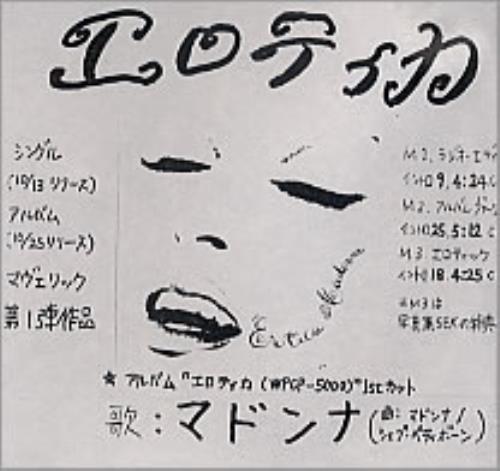 エロティカ
シングル
(10/13 リリース)
アルバム
(10/25リリース)
マヴェリック
第1弾作品
M1. ラジオ・エデ
イントロ9. 4:24
M2. アルバム・ヴァー
イントロ25. 5:12
M3. エロティック
イントロ18 4:25
※M3は
写真集SEXの特典
Erotica Madonna
★ アルバム "エロティカ (WPCP-5000)" 1stカット
歌：マドンナ (曲：マドンナ/
シェプ・ペティボーン)